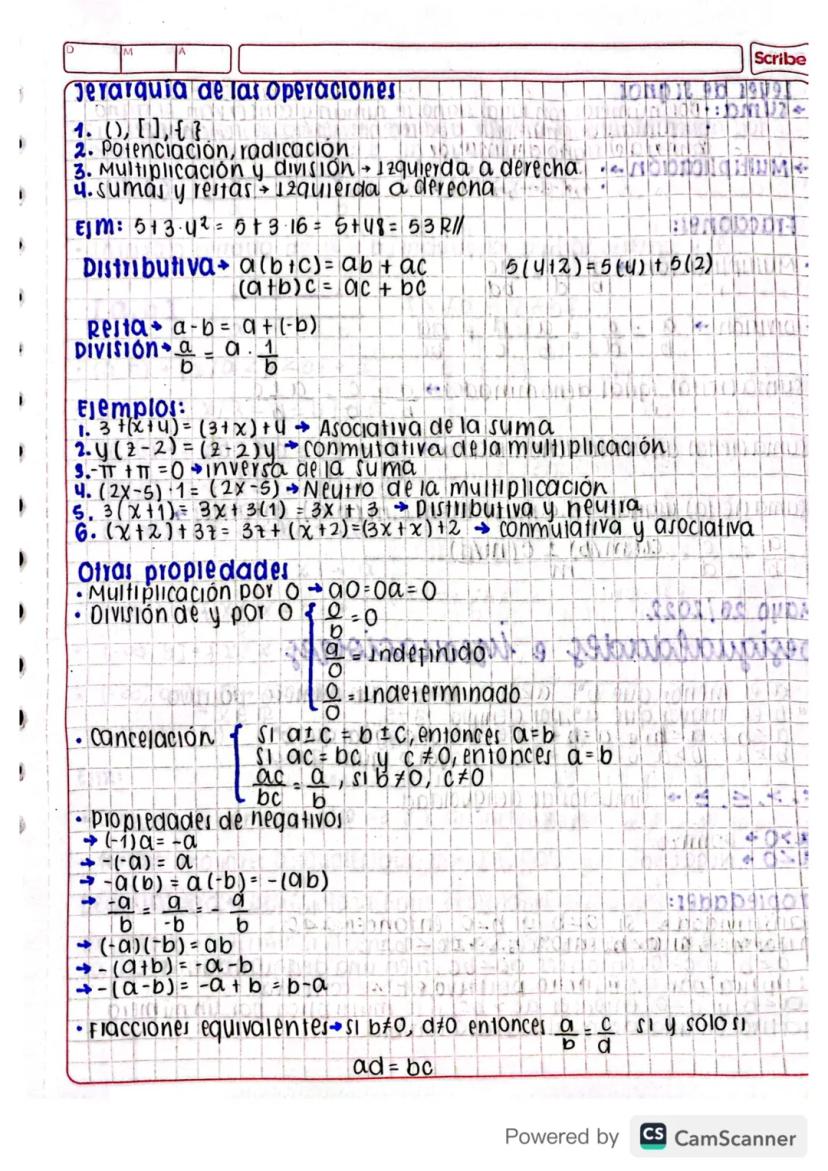 D M A Scribe
Jerarquía de las Operaciones
1. (), [ ], { }
2. Potenciación, radicación
3. Multiplicación y división → Izquierda a derecha
4. sumas y restas → Izquierda a derecha
Ejm: 5+3·4² = 5+3·16 = 5+48 = 53 R//
Distributiva → a(b+c) = ab + ac 5(4+2) = 5(4) + 5(2)
(a+b)c = ac + bc
Resta → a-b = a+(-b)
División → a/b = a · 1/b
Ejemplos:
1. 3+(x+4) = (3+x)+4 → Asociativa de la suma
2. y(z-2) = (z-2)y → conmutativa de la multiplicación
3. -π+π = 0 → inversa de la suma
4. (2x-5)·1 = (2x-5) → Neutro de la multiplicación
5. 3(x+1) = 3x+3(1) = 3x + 3 → Distributiva y neutra
6. (x+2)+3z = 3z+(x+2) = (3x+x)+2 → conmutativa y asociativa
Otras propiedades
• Multiplicación por 0 → a0=0a=0
• División de y por 0 { 0/b = 0
a/0 = Indefinido
0/0 = Indeterminado
• Cancelación { Si a±c = b±c, entonces a=b
Si ac = bc y c≠0, entonces a=b
ac/bc = a/b, si b≠0, c≠0
• Propiedades de negativos
→ (-1)a = -a
→ -(-a) = a
→ -a(b) = a(-b) = -(ab)
→ -a/b = a/-b = - a/b
→ (-a)(-b) = ab
→ -(a+b) = -a-b
→ -(a-b) = -a+b = b-a
• Fracciones equivalentes → si b≠0, d≠0 entonces a/b = c/d si y sólo si
ad = bc
Powered by CS CamScanner